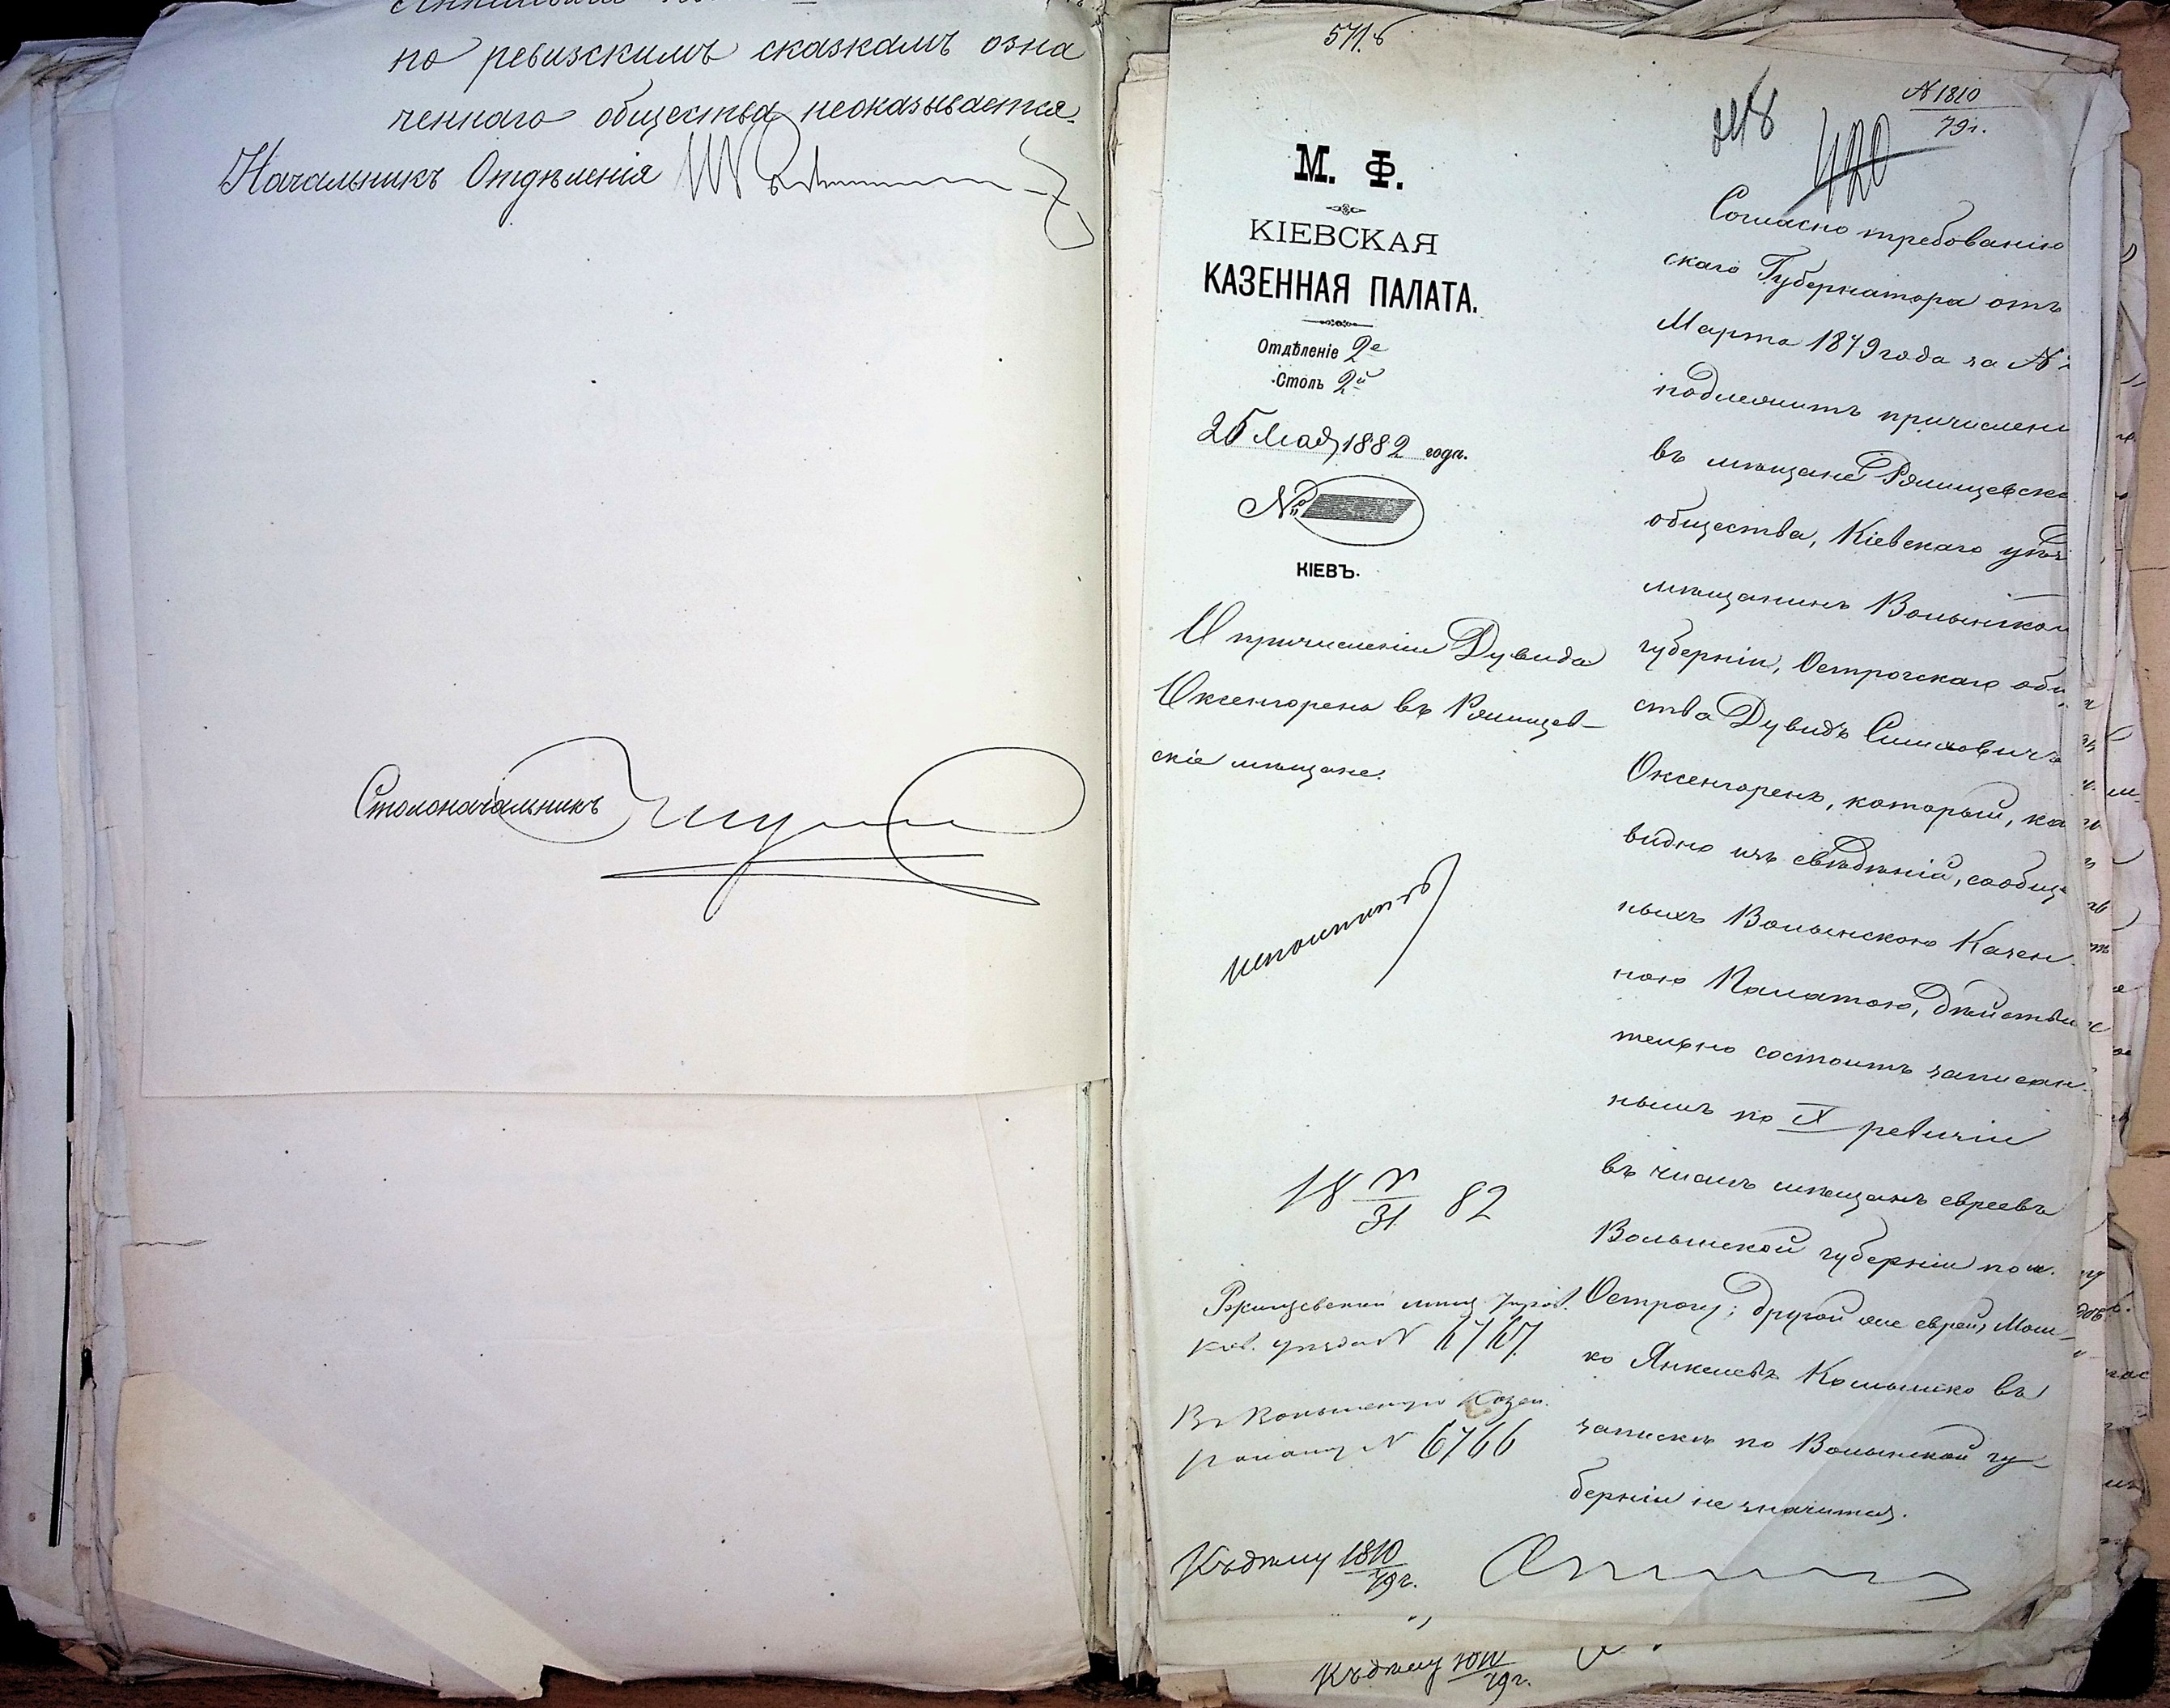 по ревизскимъ сказкамъ озна
ченнаго общества неоказывается.
Начальникъ Отдѣленія
Столоначальникъ
571.б
418
420
№ 1810
79 г.
М. Ф.
КІЕВСКАЯ
КАЗЕННАЯ ПАЛАТА.
Отдѣленіе 2е
Столъ 2й
25 Мая 1882 года.
№
КІЕВЪ.
О причисленіи Дувида
Оксенгорена въ Ржищев-
скіе мѣщане.
исполнить
18 V/31 82
Ржищевской мѣщ. Управ.
Кіев. уѣзда № 6767
Въ Волынскую Казен.
Палату № 6766
Къ дѣлу 1810/79 г.
Согласно требованію
скаго Губернатора отъ
Марта 1879 года за №
подлежитъ причислені
въ мѣщане Ржищевска
общества, Кіевскаго уѣз
мѣщанинъ Волынской
губерніи, Острожскаго общ
ства Дувидъ Симховичъ
Оксенгоренъ, который, ка
видно изъ свѣдѣній, сообще
ныхъ Волынскою Казен
ною Палатою, дѣйстви
тельно состоитъ записан
нымъ по X ревизіи
въ числѣ мѣщанъ евреевъ
Волынской губерніи по м.
Острогу; другой же еврей, Мош-
ко Янкелевъ въ
запискѣ по Волынской гу-
берніи не значится.
Къ дѣлу 1810/79 г.